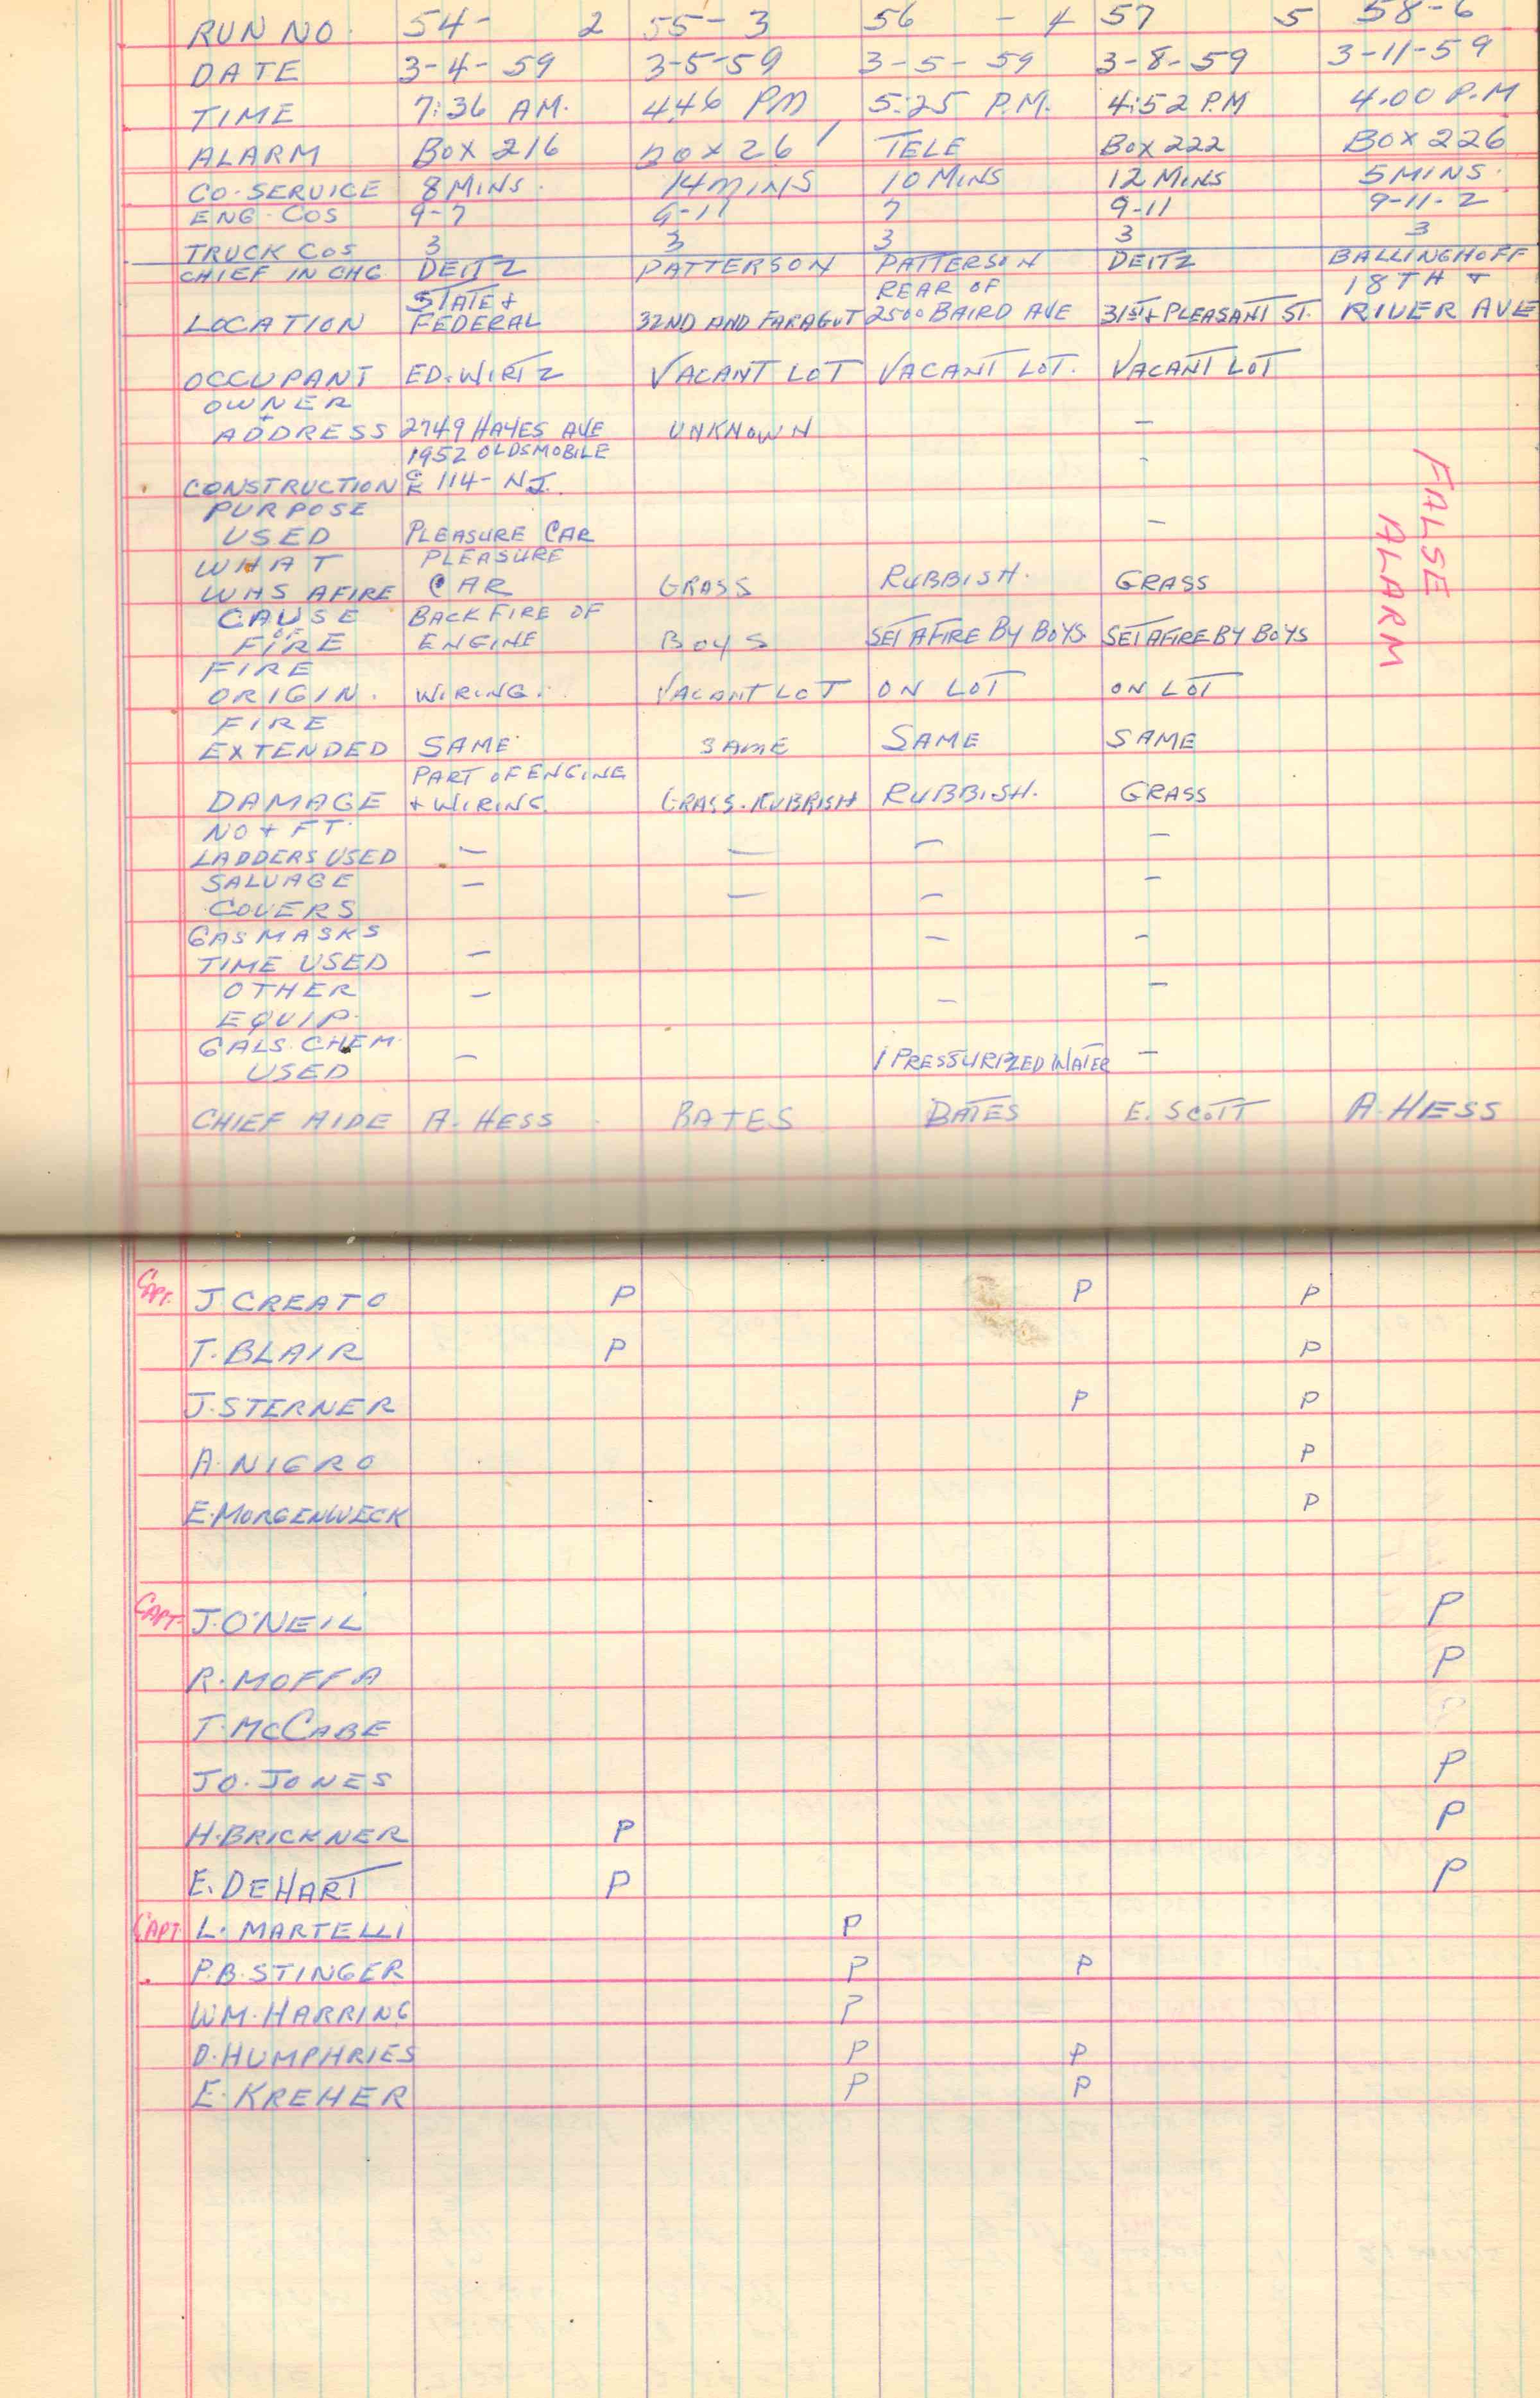 RUN NO. 54- 2 55-3 56 - 4 57 5 58-6
DATE 3-4-59 3-5-59 3-5-59 3-8-59 3-11-59
TIME 7:36 AM. 4:46 PM 5:25 P.M. 4:52 P.M 4.00 P.M
ALARM BOX 216 BOX 26 TELE BOX 222 BOX 226
CO. SERVICE 8 MINS. 14 MINS 10 MINS 12 MINS 5 MINS.
ENG. COS 9-7 9-11 7 9-11 9-11-2
TRUCK COS 3 3 3 3 3
CHIEF IN CHG DEITZ PATTERSON PATTERSON DEITZ BALLINGHOFF
STATE + REAR OF 18TH +
LOCATION FEDERAL 32ND AND FARAGUT 2500 BAIRD AVE 31ST + PLEASANT ST. RIVER AVE
OCCUPANT ED. WIRTZ VACANT LOT VACANT LOT. VACANT LOT
OWNER
+
ADDRESS 2749 HAYES AVE UNKNOWN —
1952 OLDSMOBILE -
CONSTRUCTION 114- N.J.
PURPOSE
USED PLEASURE CAR —
WHAT PLEASURE
WAS AFIRE CAR GRASS RUBBISH. GRASS
CAUSE BACKFIRE OF
OF
FIRE ENGINE BOYS SET AFIRE BY BOYS. SET AFIRE BY BOYS
FIRE
ORIGIN. WIRING. VACANT LOT ON LOT ON LOT
FIRE
EXTENDED SAME SAME SAME SAME
PART OF ENGINE
DAMAGE + WIRING. GRASS. RUBBISH RUBBISH. GRASS
NO + FT.
LADDERS USED — — — —
SALVAGE — —
COVERS — —
GAS MASKS — -
TIME USED —
OTHER — —
EQUIP. —
GALS. CHEM. — —
USED 1 PRESSURIZED WATER
CHIEF AIDE A. HESS BATES BATES E. SCOTT A. HESS
FALSE
ALARM
CAPT. J CREATO P P P
T. BLAIR P P
J. STERNER P P
A. NIGRO P
E. MORGENWECK P
CAPT. J. O'NEIL P
R. MOFFA P
T. MCCABE
JO. JONES P
H. BRICKNER P P
E. DEHART P P
CAPT. L. MARTELLI P
P.B. STINGER P P
WM. HARRING P
D. HUMPHRIES P P
E. KREHER P P